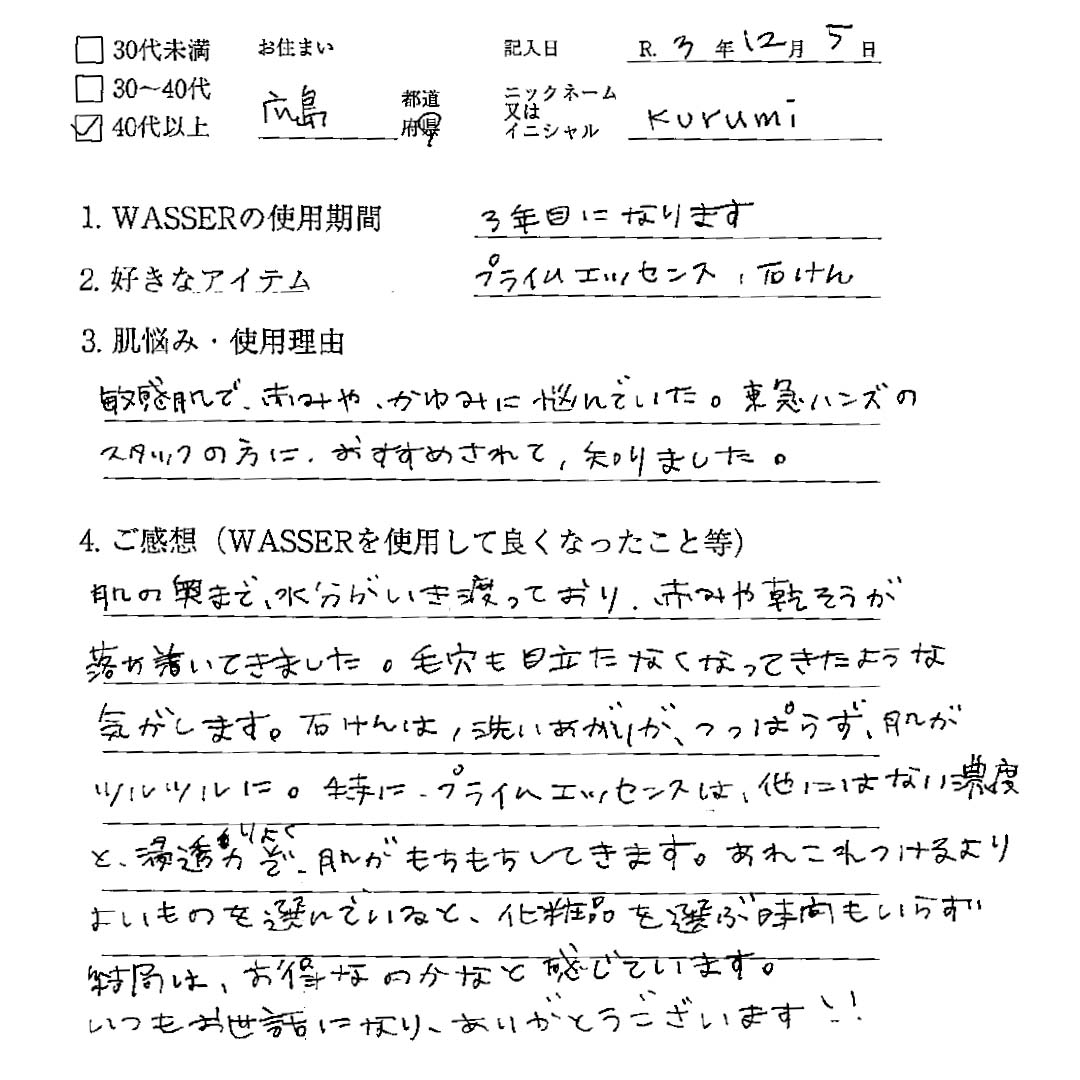 30代未満 お住まい 記入日 R. 3 年 12 月 5 日
30〜40代 広島 都道府県 ニックネーム又はイニシャル Kurumi
40代以上
1. WASSERの使用期間 3年目になります
2. 好きなアイテム プライムエッセンス、石けん
3. 肌悩み・使用理由
敏感肌で、赤みや、かゆみに悩んでいた。東急ハンズの
スタッフの方に、おすすめされて、知りました。
4. ご感想（WASSERを使用して良くなったこと等）
肌の奥まで、水分がいき渡っており、赤みや乾そうが
落ち着いてきました。毛穴も目立たなくなってきたような
気がします。石けんは、洗いあがりが、つっぱらず、肌が
ツルツルに。特に、プライムエッセンスは、他にはない濃度
と、浸透力で、肌がもちもちしてきます。あれこれつけるより
よいものを選んでいると、化粧品を選ぶ時間もいらず
結局は、お得なのかなと感じています。
いつもお世話になり、ありがとうございます!!